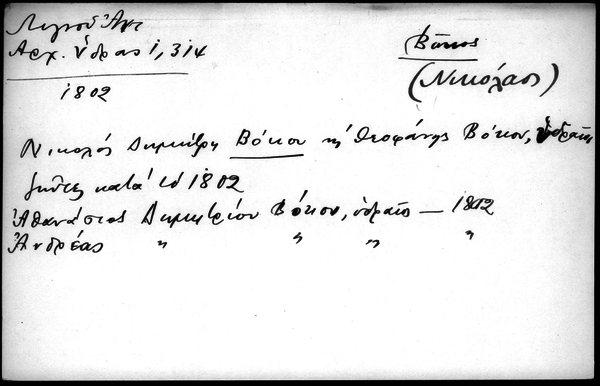 Λιγνοῦ Ἀντ
Ἀρχ. Ὕδρας 1, 314
1802
Βόκος
(Νικόλαος)
Νικολός Δημήτρη Βόκου κ Θεοφάνης Βόκου, ὑδραῖοι
κατά τό 1802
Ἀθανάσιος Δημητρίου Βόκου, ὑδραῖος — 1802
Ἀνδρέας " " " "